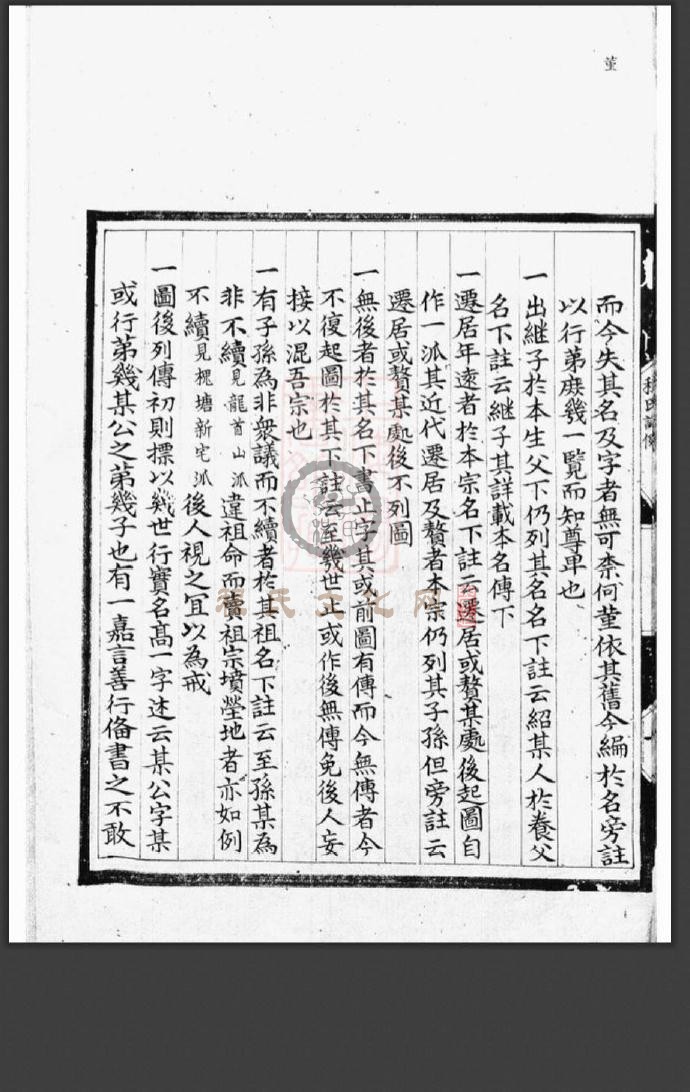 董
而今失其名及字者無可柰何董依其舊今編於名旁註
以行苐庻幾一覽而知尊卑也
一出継子於本生父下仍列其名名下註云紹某人於養父
名下註云継子其詳載本名傳下
一遷居年遠者於本宗名下註云遷居或贅某處後起圖自
作一派其近代遷居及贅者本宗仍列其子孫但旁註云
遷居或贅某處後不列圖
一無後者於其名下書止字其或前圖有傳而今無傳者今
不復起圖於其下註云至幾世止或作後無傳免後人妄
接以混吾宗也
一有子孫為非衆議而不續者於其祖名下註云至孫某為
非不續見龍首山派違祖命而賣祖宗墳塋地者亦如例
不續見槐塘新宅派後人視之冝以為戒
一圖後列傳初則摽以幾世行實名高一字述云某公字某
或行苐幾某公之苐幾子也有一嘉言善行俻書之不敢
程氏文化网